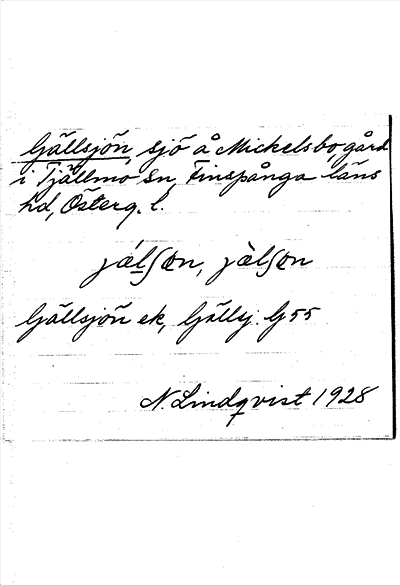 Gällsjön, sjö å Mickelsbo gård
i Tjällmo sn, Finspånga läns
hd, Österg. l.
Gällsjön ek, Gällsj. G55
N. Lindqvist 1928